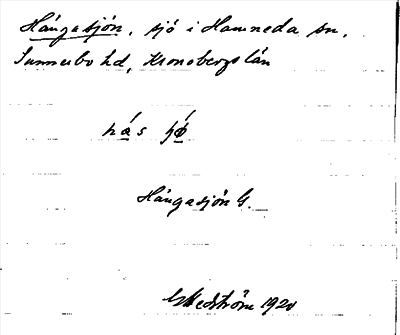 Hångasjön, sjö i Hamneda sn,
Sunnerbo hd, Kronobergs län
hås
Hångasjön G.
1920